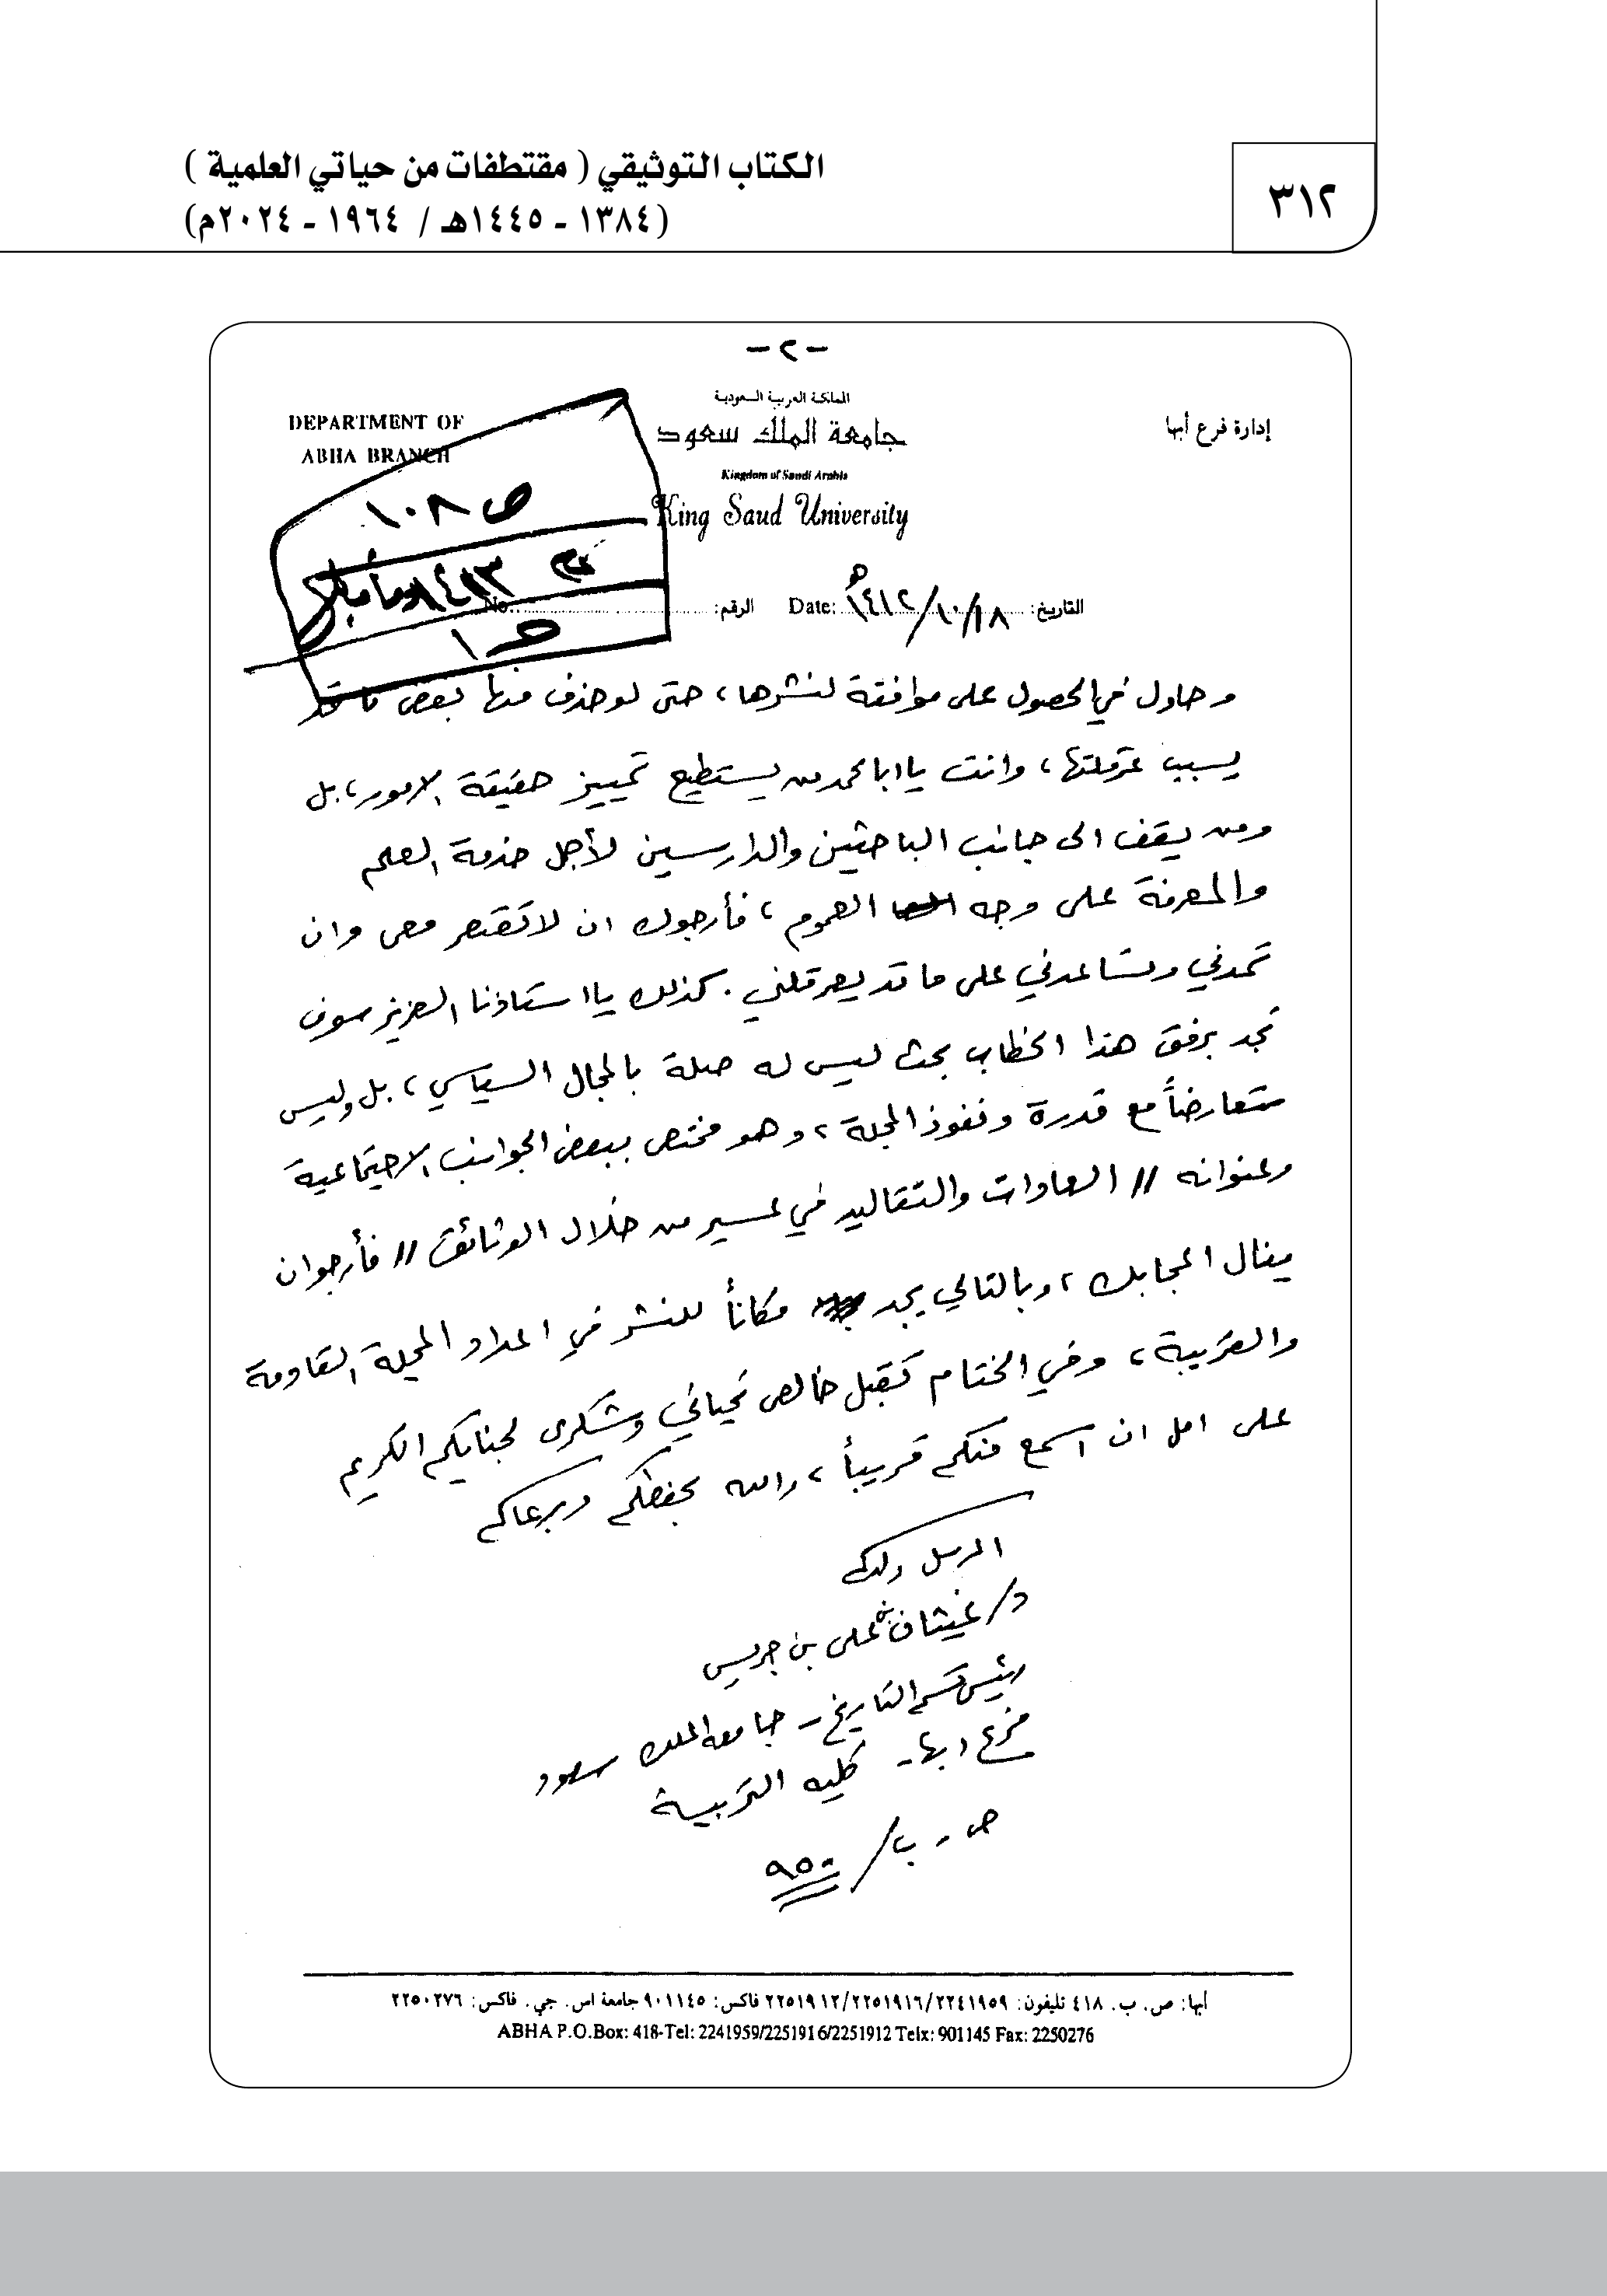 ٣١٢
الكتاب التوثيقي ( مقتطفات من حياتي العلمية )
(١٣٨٤ - ١٤٤٥هـ / ١٩٦٤ - ٢٠٢٤م)
- ٢ -
إدارة فرع أبها
المملكة العربية السعودية
جامعة الملك سعود
Kingdom of Saudi Arabia
King Saud University
DEPARTMENT OF
ABHA BRANCH
ص ١٠٨
١٤١٣
ج١
التاريخ: ١٤١٢/١٠/١٨هـ Date: الرقم: No.
وحاول في الحصول على موافقة لنشرها، حتى لو حذف منها بعض ما قد
يسبب عرقلتها، وانت يا ابا محمد من يستطيع تمييز حقيقة الامور، بل
ومن يقف الى جانب الباحثين والدارسين لأجل خدمة العلم
والمعرفة على وجه العموم، فأرجوك ان لا تقتصر معي وان
تمدني وتساعدني على ما قد يعرقلني. كذلك يا استاذنا العزيز سوف
تجد برفق هذا الخطاب بحث ليس له صلة بالمجال السياسي، بل وليس
متعارضاً مع قدرة ونفوذ المجلة، وهو مختص ببعض الجوانب الاجتماعية
وعنوانه // العادات والتقاليد في عسير من خلال الوثائق // فأرجو ان
ينال اعجابك، وبالتالي يجد مكاناً للنشر في اعداد المجلة القادمة
والقريبة، وفي الختام تقبل خالص تحياتي وشكري لجنابكم الكريم
على امل ان اسمع منكم قريباً، والله يحفظكم ويرعاكم
المرسل ولدكم
د/ غيثان بن علي بن جريس
رئيس قسم التاريخ - جامعة الملك سعود
فرع ابها - كلية التربية
ص . ب / ٩٥٠
أبها: ص. ب. ٤١٨ تليفون: ٢٢٤١٩٥٩/٢٢٥١٩١٦/٢٢٥١٩١٢ فاكس: ٩٠١١٤٥ جامعة اس. جي. فاكس: ٢٢٥٠٢٧٦
ABHA P.O.Box: 418-Tel: 2241959/2251916/2251912 Telx: 901145 Fax: 2250276